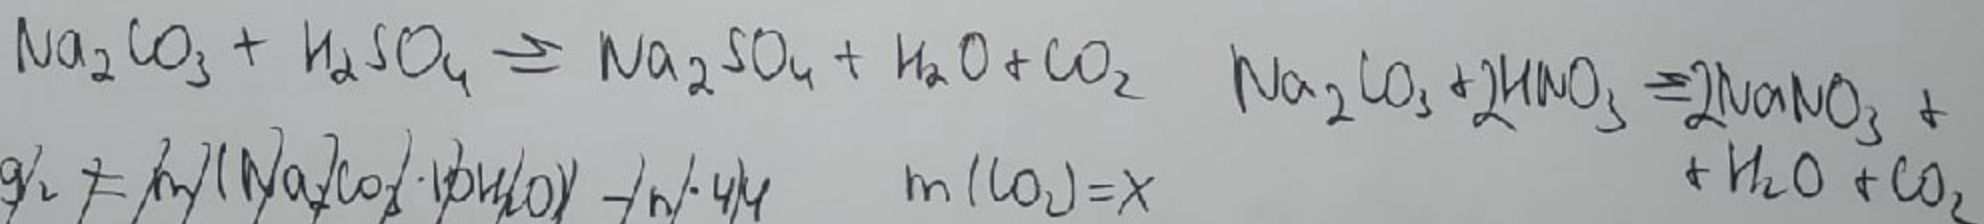 Na₂CO₃ + H₂SO₄ = Na₂SO₄ + H₂O + CO₂
Na₂CO₃ + 2HNO₃ = 2NaNO₃ +
+ H₂O + CO₂
m(CO₂) = x